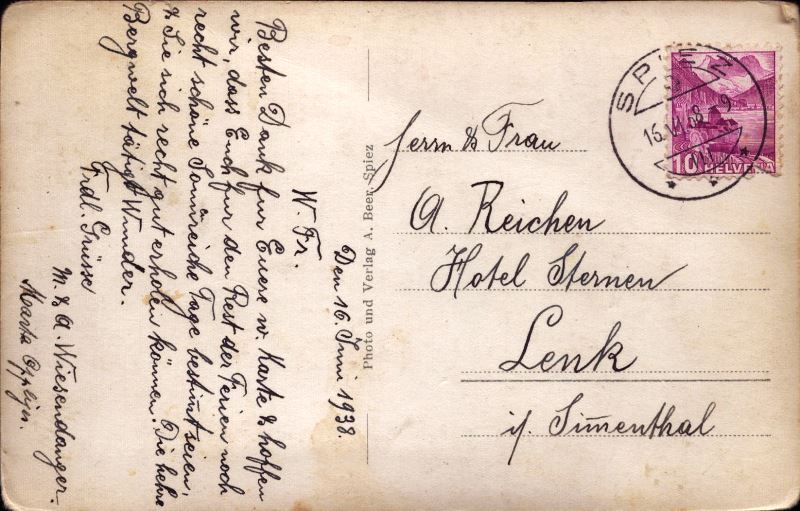 Den 16. Juni 1938.
W. Fr.
Besten Dank für Euere w. Karte & hoffen
wir, dass Euch für den Rest der Ferien noch
recht schöne Sonnreiche Tage bestimt seien,
& Sie sich recht gut erholen können. Die hehre
Bergwelt tätigt Wunder.
Frdl. Grüsse
M. & A. Wiesendanger.
Photo und Verlag A. Beer, Spiez
SPIEZ
10
HELVETIA
Herrn & Frau
A. Reichen
Hotel Sternen
Lenk
i/. Simenthal